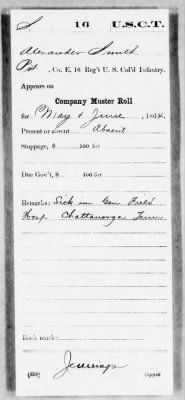 S. 16 U.S.C.T.
Alexander Smith
Pvt., Co. E, 16 Reg't U. S. Col'd Infantry.
Appears on
Company Muster Roll
for May & June, 1864.
Present or absent Absent
Stoppage, $ 100 for
Due Gov't, $ 100 for
Remarks: Sick in Gen Field
Hosp Chattanooga Tenn
Book mark:
Jennings
(358)
Copyist.